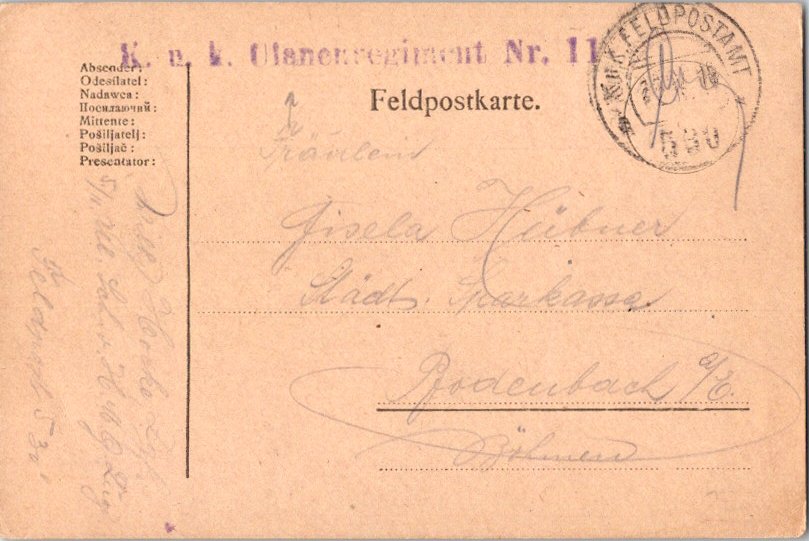 K. u. k. Ulanenregiment Nr. 11
K.u.K. FELDPOSTAMT
530
Absender:
Odesílatel:
Nadawca:
Посилаючий:
Mittente:
Pošiljatelj:
Pošiljač:
Presentator:
Feldpostkarte.
Fräulein
Gisela Hübner
Städt. Sparkassa
Bodenbach a/E.
Böhmen
Feldpost 530